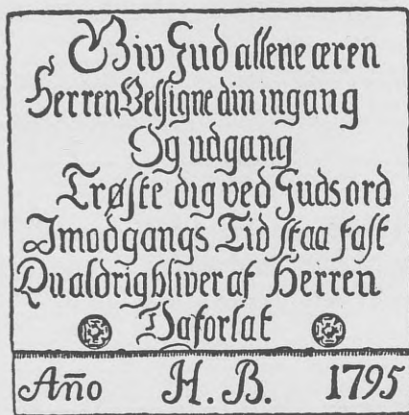 Giv Gud allene æren
Herren Velsigne din ingang
Og udgang
Trøste dig ved Guds ord
Imodgangs Tid staa fast
Du aldrig bliver af Herren
Da forlat
Año H. B. 1795